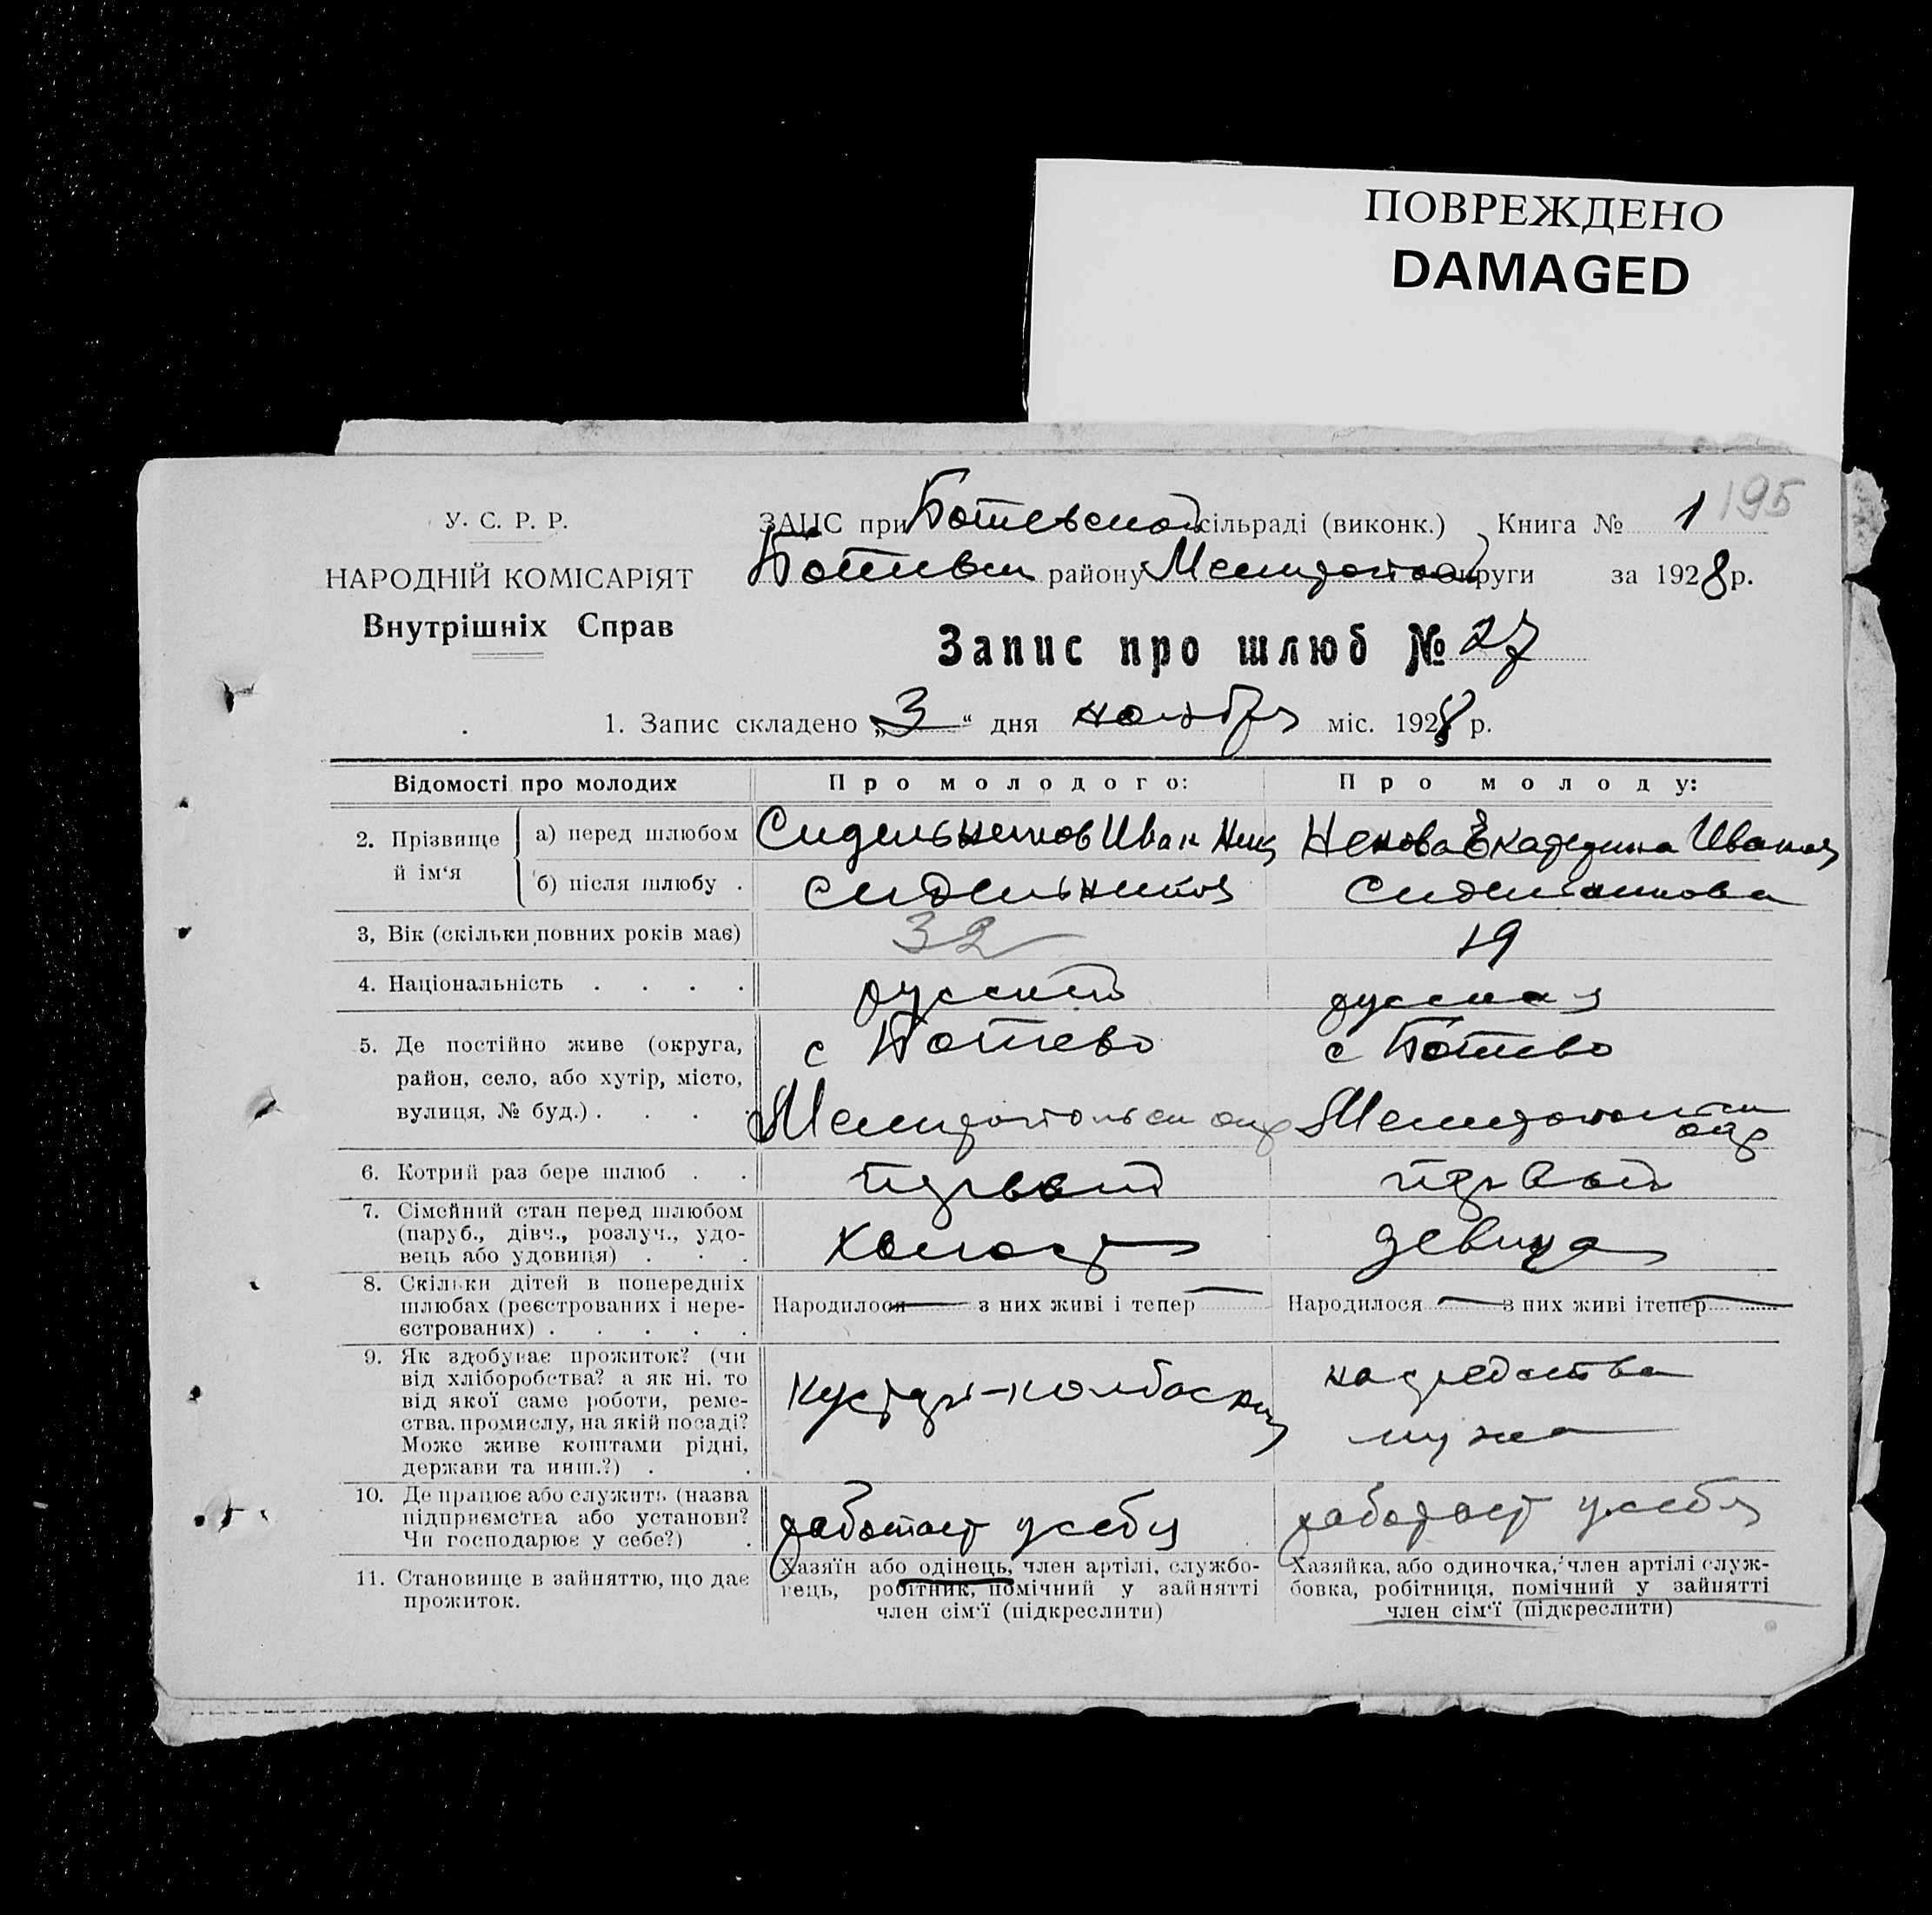 ПОВРЕЖДЕНО
DAMAGED
195
У. С. Р. Р.
НАРОДНІЙ КОМІСАРІЯТ
Внутрішніх Справ
ЗАЦС при Ботевской сільраді (виконк.) Книга № 1
Ботивск району округи за 1928 р.
Запис про шлюб № 27
1. Запис складено „3“ дня ноября міс. 1928 р.
Відомості про молодих Про молодого: Про молоду:
2. Прізвище й ім‘я
а) перед шлюбом Сидельников Иван Ник Ненова Екатерина Ивановн
б) після шлюбу . Сидельников Сидельникова
3, Вік (скільки повних років має) 32 19
4. Національність . . . . русский русская
5. Де постійно живе (округа, район, село, або хутір, місто, вулиця, № буд.) . . . .
с Ботево с Ботево
Мелитопольск окр Мелитопольск окр
6. Котрий раз бере шлюб . . первый первый
7. Сімейний стан перед шлюбом (паруб., дівч., розлуч., удовець або удовиця) . . . холост девица
8. Скільки дітей в попередніх шлюбах (реєстрованих і нереєстрованих) . . . . .
Народилося — з них живі і тепер — Народилося — з них живі ітепер —
9. Як здобуває прожиток? (чи від хліборобства? а як ні. то від якої саме роботи, ремества. промислу, на якій посаді? Може живе коштами рідні, держави та инш.?) . .
кустарь-колбасник на средства
мужа
10. Де працює або служить (назва підприємства або установи? Чи господарює у себе?) .
работает у себя работает у себя
11. Становище в зайняттю, що дає прожиток.
Хазяїн або одінець, член артілі, службовець, робітник, помічний у зайнятті член сім‘ї (підкреслити)
Хазяйка, або одиночка, член артілі службовка, робітниця, помічний у зайнятті член сім‘ї (підкреслити)